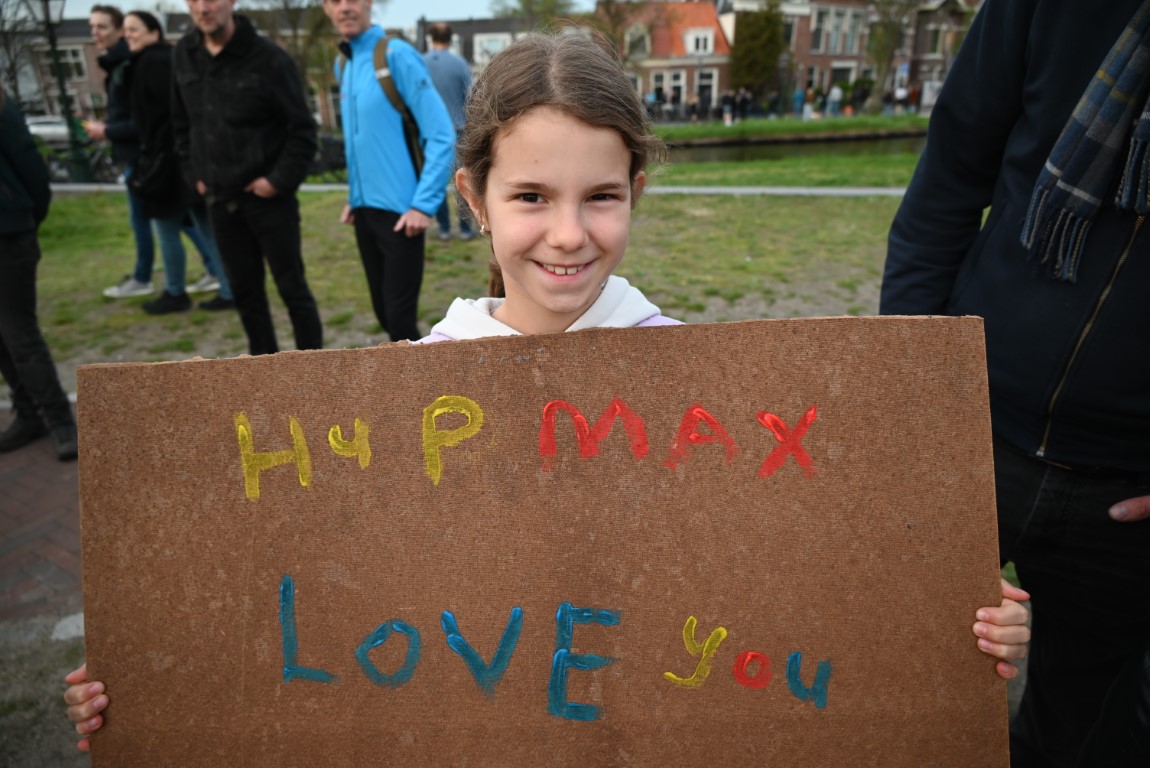 HyP MAX
LOVE you